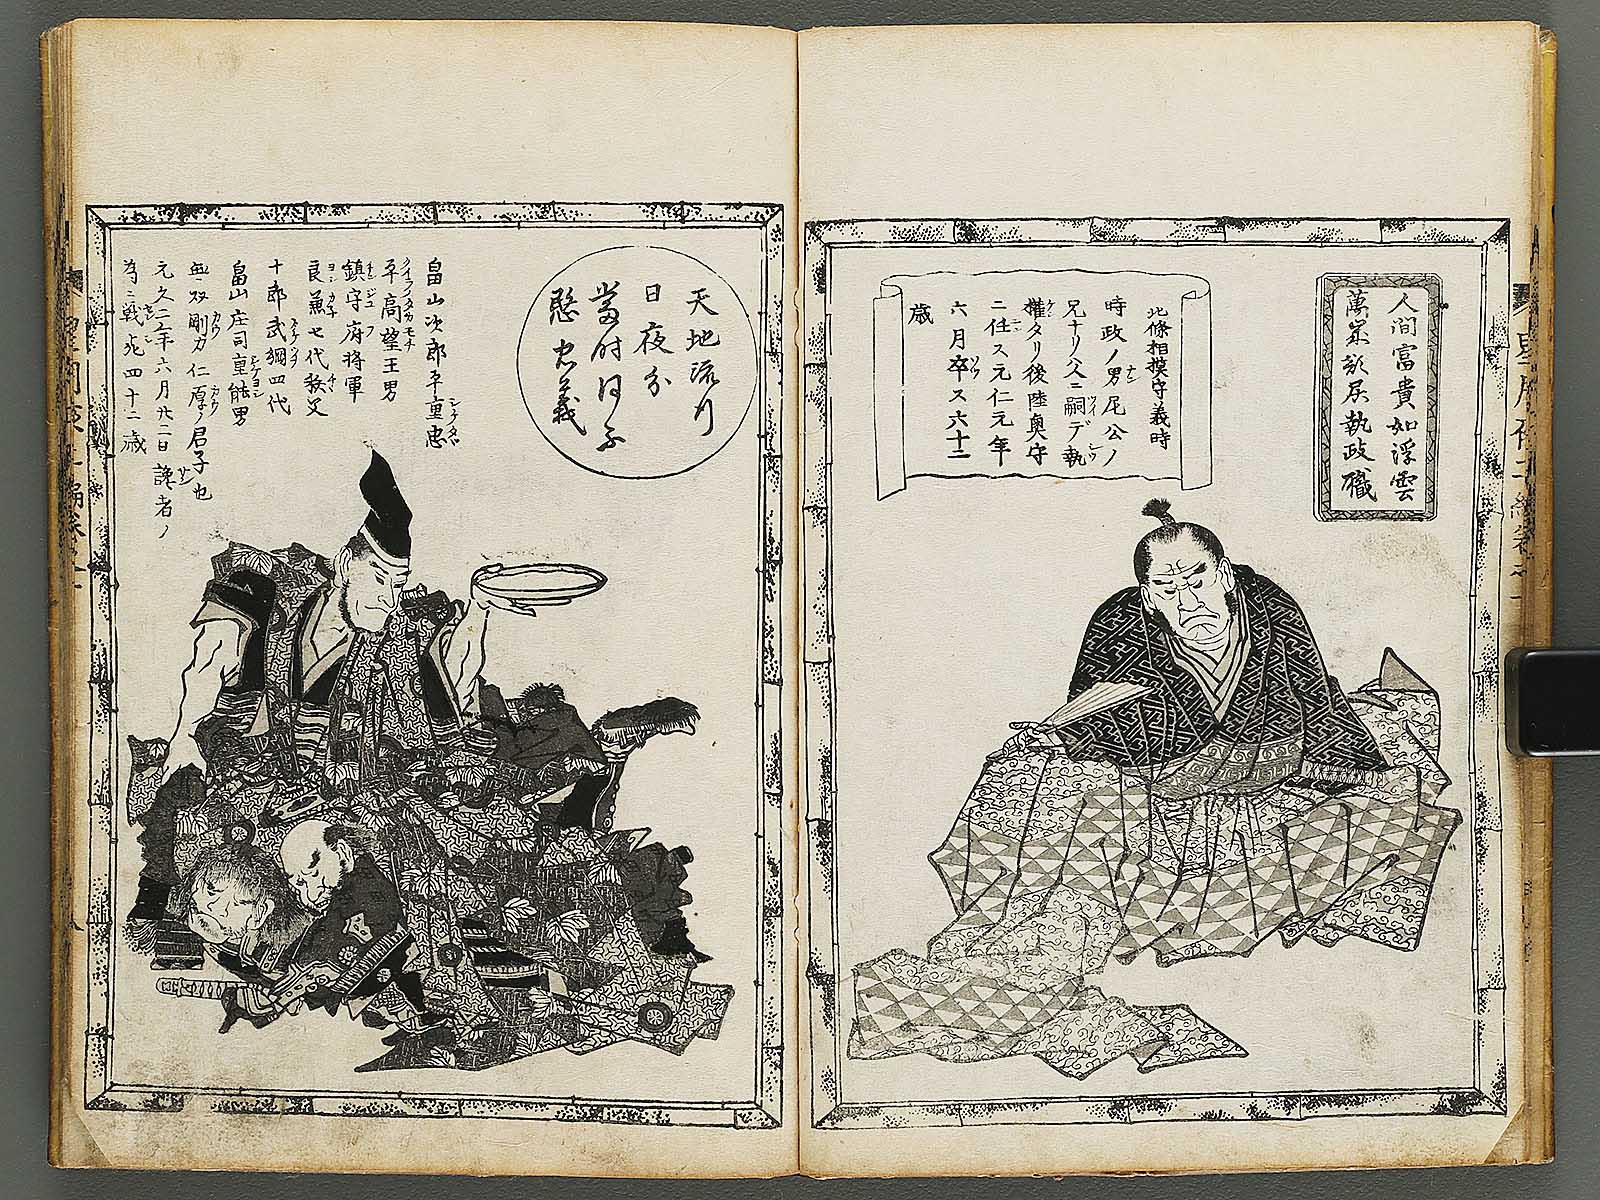 人間富貴如浮雲
執政職
北條相摸守義時
時政ノ男尼公ノ
兄ナリ公ニ嗣デ執
權タリ後陸奥守
ニ任ス元仁元年
六月卒ス六十二
歳
天地流行
日夜分
當時
忠義
畠山次郎平重忠
平高望王男
鎮守府将軍
良兼七代秩父
十郎武綱四代
畠山庄司重能男
無双剛力仁厚ノ君子也
元久二年六月廿二日讒者ノ
為ニ戦死四十二歳